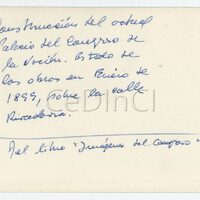 Construcción del actual
Palacio del Congreso de
la Nación. Estado de
las obras en Enero de
1899, sobre la calle
Rivadavia.
CeDInCI
Del libro "Imágenes del Congreso"